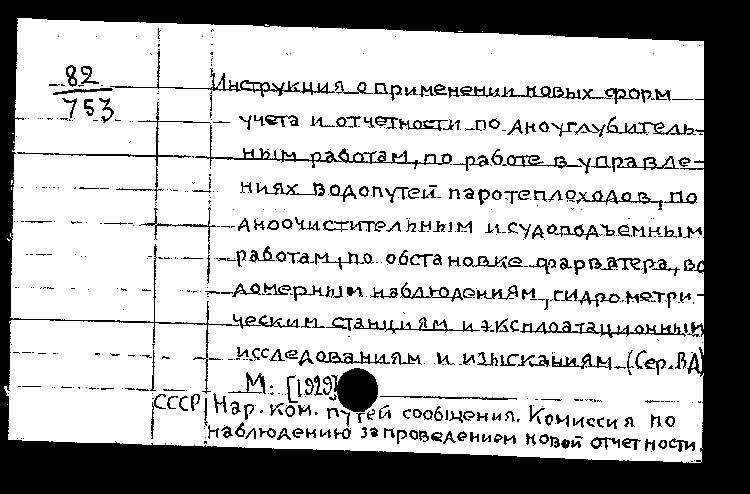 82
753
Инструкция о применении новых форм
учета и отчетности по дноуглубитель-
ным работам, по работе в управле-
ниях водопутей паротеплоходов, по
дноочистительным и судоподъемным
работам, по обстановке фарватера, во
домерным наблюдениям, гидрометри-
ческим станциям и эксплоатационным
исследованиям и изысканиям (Сер. ВД)
М. [1929]
СССР Нар. ком. путей сообщения. Комиссия по
наблюдению за проведением новой отчетности.